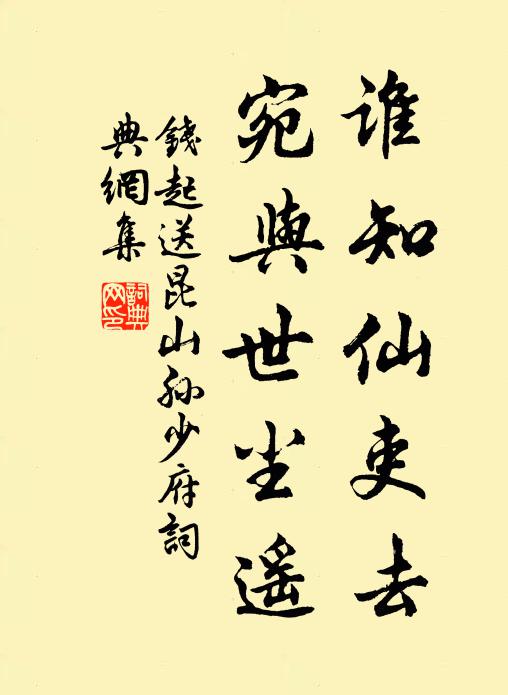 谁知仙吏去
宛與世尘遥
錢起送昆山孙少府詞
典網集
詞典
网印